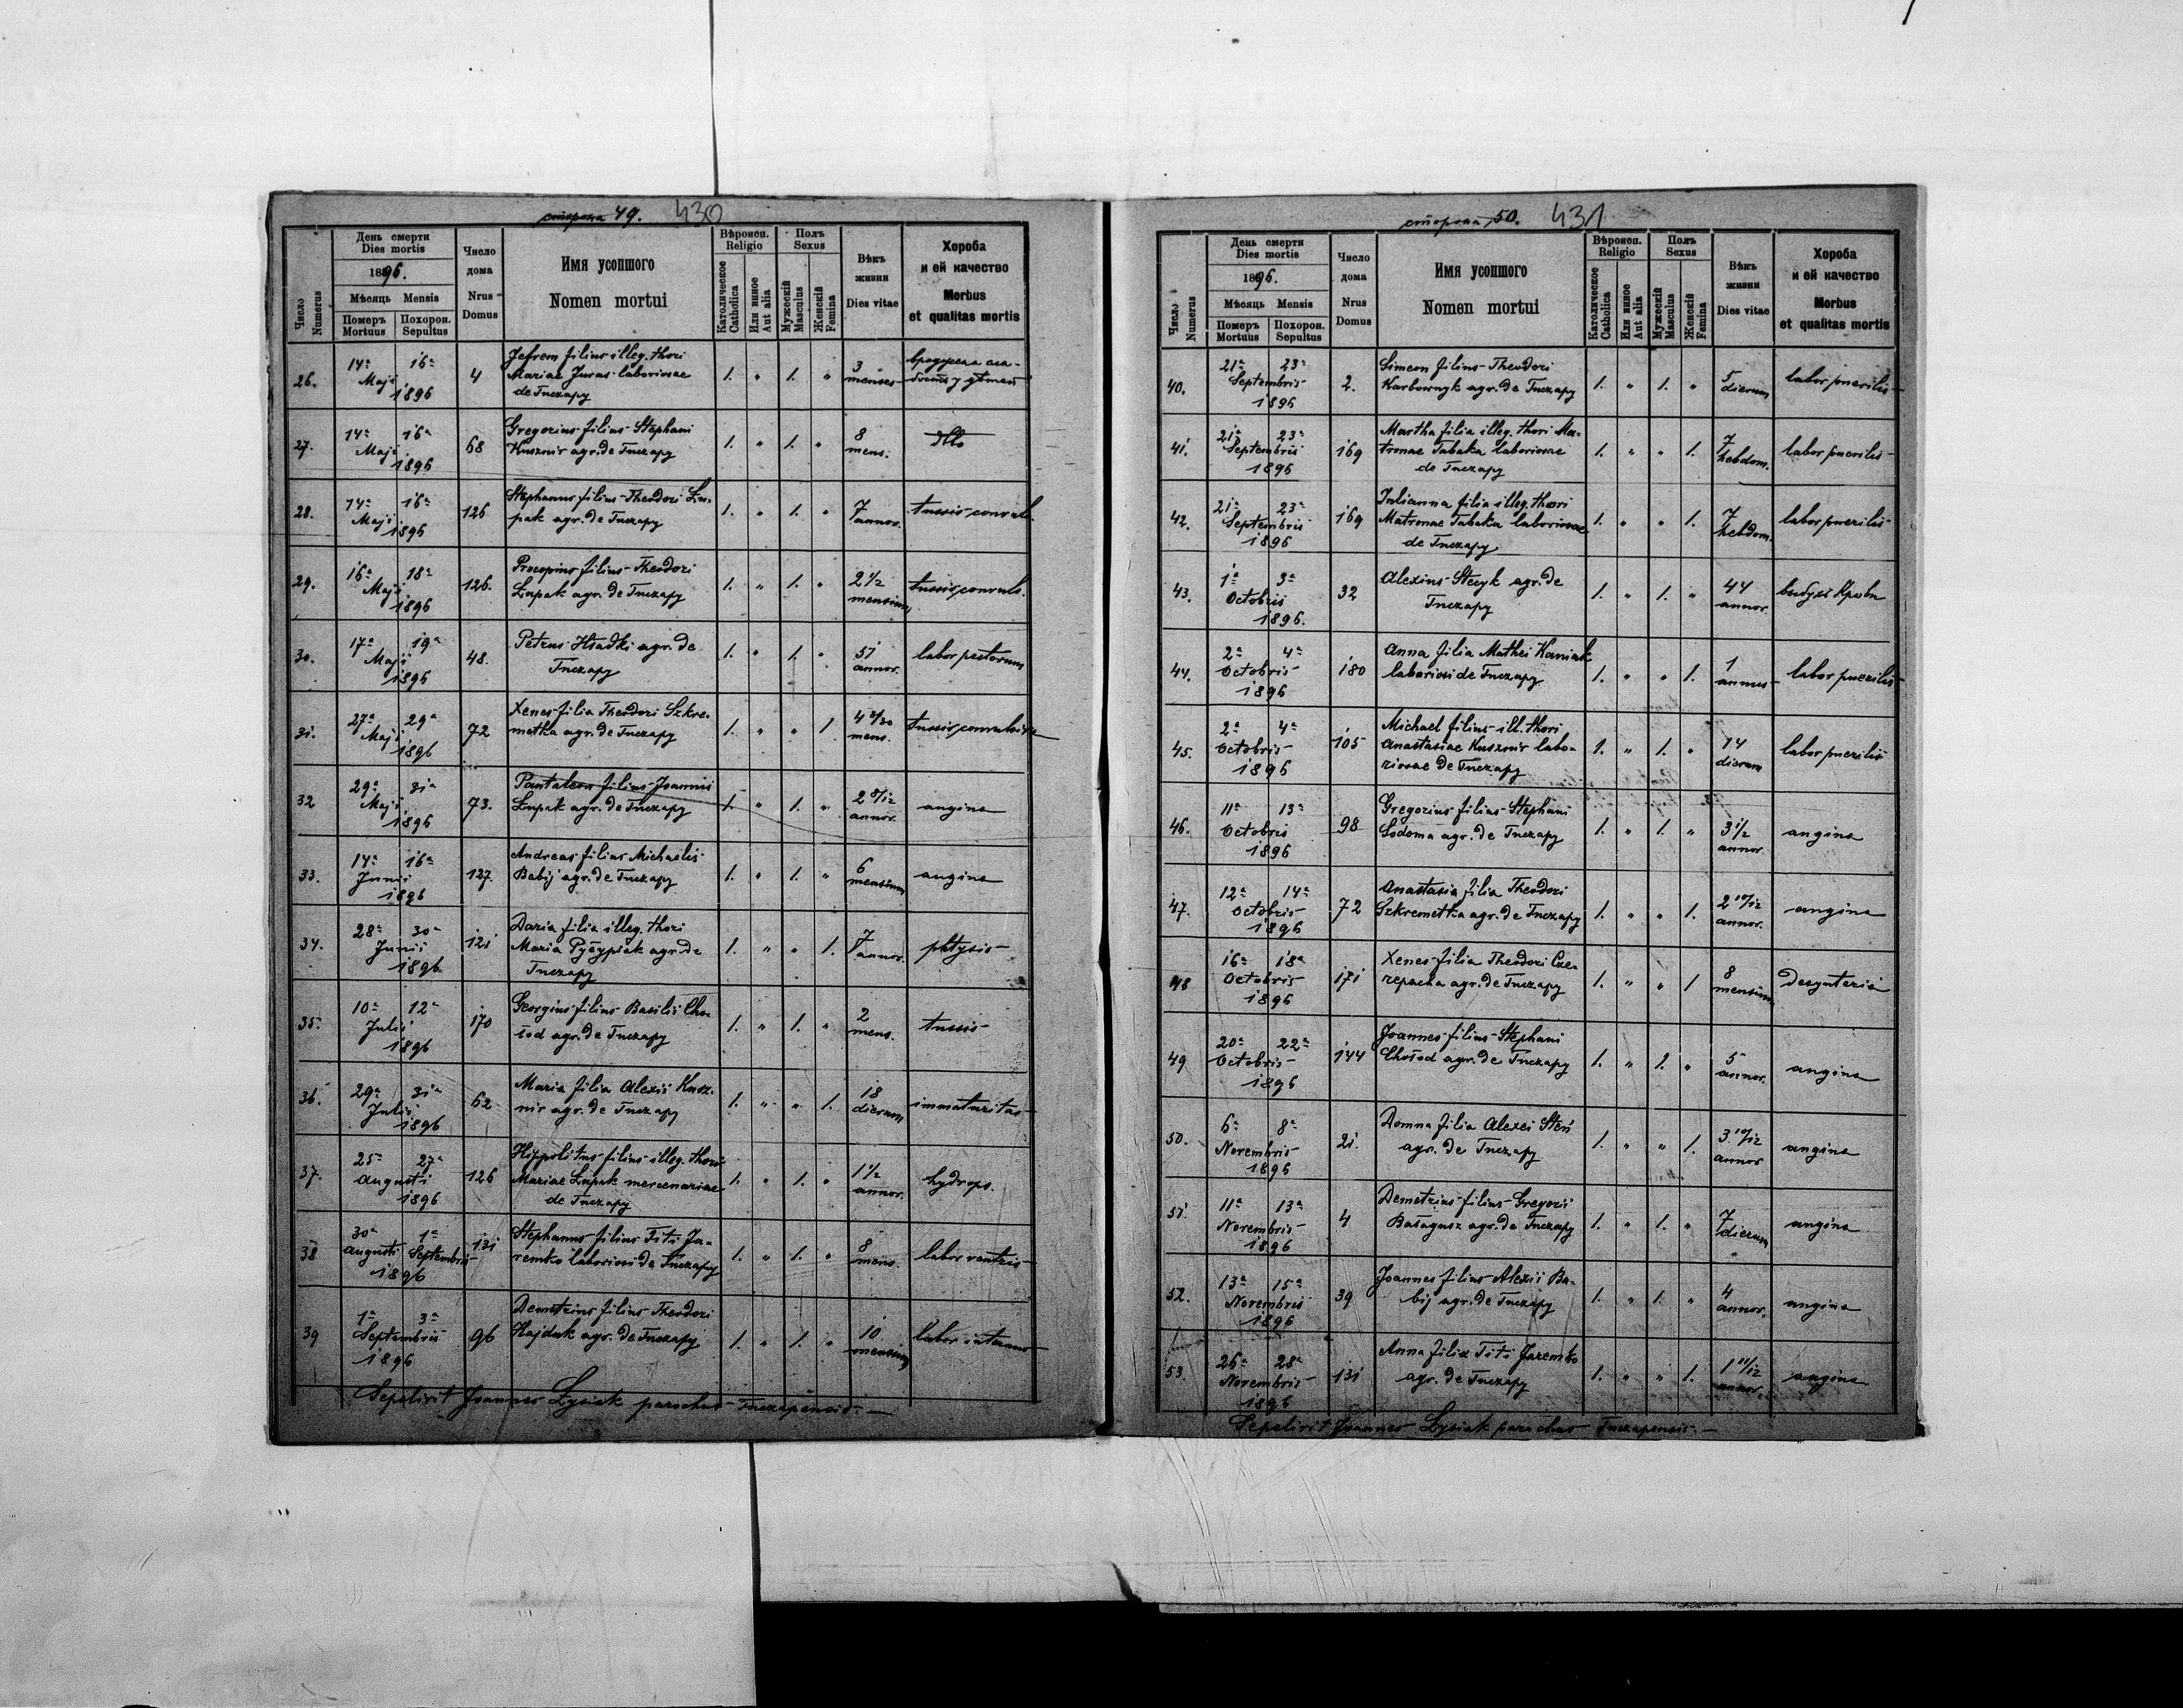 сторона 49. 430
Число
Numerus
День смерти
Dies mortis
1896.
Мѣсяць Mensis
Померъ
Mortuus
Похорон.
Sepultus
Число
дома
Nrus
Domus
Имя усопшого
Nomen mortui
Вѣроисп.
Religio
Католическое
Catholica
Или инное
Aut alia
Полъ
Sexus
Мужескій
Masculus
Женскій
Femina
Вѣкъ
жизни
Dies vitae
Хороба
и ей качество
Morbus
et qualitas mortis
26. 14a 16a Maji 1896 4 Jefrem filius illeg. thori
Mariae Juras laboriosae
de Tuczapy 1. " 1. " 3 menses
27. 14a 16a Maji 1896 68 Gregorius filius Stephani
Kusznir agr. de Tuczapy 1. " 1. " 8 mens. dtto
28. 14a 16a Maji 1896 126 Stephanus filius Theodori Łu-
pak agr. de Tuczapy 1. " 1. " 7 annor. tussis convuls.
29. 16a 18a Maji 1896 126. Procopius filius Theodori
Łupak agr. de Tuczapy 1. " 1. " 2 1/2 mensium tussis convuls.
30. 17a 19a Maji 1896 48. Petrus Hładki agr. de
Tuczapy 1. " 1. " 51 annor. labor pectorum
31. 27a 29a Maji 1896 72 Xenes filia Theodori Szkre-
metka agr. de Tuczapy 1. " " 1 4 mens. tussis convulsiva
32 29a 31a Maji 1896 73. Pantaleon filius Joannis
Łupak agr. de Tuczapy 1. " 1. " 2 8/12 annor. angina
33. 14a 16a Junii 1896 127. Andreas filius Michaelis
Babij agr. de Tuczapy 1. " 1. " 6 mensium angina
34. 28a 30a Junii 1896 121 Daria filia illeg. thori
Maria agr. de
Tuczapy 1. " " 1. 7 annor. phtysis
35. 10a 12a Julii 1896 170 Georgius filius Basilii Cho-
łod agr. de Tuczapy 1. " 1. " 2 mens. tussis
36. 29a 31a Julii 1896 62 Maria filia Alexii Kusz-
nir agr. de Tuczapy 1. " " 1. 18 dierum immaturitas
37. 25a 27a Augusti 1896 126 Hippolitus filius illeg. thori
Mariae Łupak mercenariae
de Tuczapy 1. " 1. " 1 1/2 annor. hydrops.
38 30a Augusti 1a Septembris 1896 131 Stephanus filius Titi Ja-
remko laboriosi de Tuczapy 1. " 1. " 8 mens. labor ventris
39 1a 3a Septembris 1896 96 Demetrius filius Theodori
Hajduk agr. de Tuczapy 1. " 1. " 10 mensium labor internus
Sepelivit Joannes Łysiak parochus Tuczapensis.
сторона 50. 431
Число
Numerus
День смерти
Dies mortis
1896.
Мѣсяць Mensis
Померъ
Mortuus
Похорон.
Sepultus
Число
дома
Nrus
Domus
Имя усопшого
Nomen mortui
Вѣроисп.
Religio
Католическое
Catholica
Или инное
Aut alia
Полъ
Sexus
Мужескій
Masculus
Женскій
Femina
Вѣкъ
жизни
Dies vitae
Хороба
и ей качество
Morbus
et qualitas mortis
40. 21a 23a Septembris 1896 2. Simeon filius Theodori
Karbownyk agr. de Tuczapy 1. " 1. " 5 dierum labor puerilis
41. 21a 23a Septembris 1896 169 Martha filia illeg. thori Ma-
tronae Tabaka laboriosae
de Tuczapy 1. " " 1. 7 hebdom. labor puerilis
42. 21a 23a Septembris 1896 169 Julianna filia illeg. thori
Matronae Tabaka laboriosae
de Tuczapy 1. " " 1. 7 hebdom. labor puerilis
43. 1a 3a Octobris 1896. 32 Alexius Stecyk agr. de
Tuczapy 1. " 1. " 44 annor. выбухъ крови
44. 2a 4a Octobris 1896 180 Anna filia Mathei Kaniak
laboriosi de Tuczapy 1. " " 1. 1 annus labor puerilis
45. 2a 4a Octobris 1896 105 Michael filius ill. thori
Anastasiae Kusznir labo-
riosae de Tuczapy 1. " 1. " 14 dierum labor puerilis
46. 11a 13a Octobris 1896 98 Gregorius filius Stephani
Sodoma agr. de Tuczapy 1. " 1. " 3 1/2 annor. angina
47. 12a 14a Octobris 1896 72 Anastasia filia Theodori
Szkremetka agr. de Tuczapy 1. " " 1. 2 10/12 annor. angina
48 16a 18a Octobris 1896 171 Xenes filia Theodori Cze-
repacha agr. de Tuczapy 1. " " 1 8 mensium desynteria
49 20a 22a Octobris 1896 144 Joannes filius Stephani
Chołod agr. de Tuczapy 1. " 1. " 5 annor. angina
50. 6a 8a Novembris 1896 21. Domna filia Alexei Steń
agr. de Tuczapy 1. " " 1. 3 10/12 annor angina
51. 11a 13a Novembris 1896 4 Demetrius filius Gregorii
Bałagusz agr. de Tuczapy 1. " 1. " 7 dierum angina
52. 13a 15a Novembris 1896 39 Joannes filius Alexii Ba-
bij agr. de Tuczapy 1. " 1. " 4 annor. angina
53. 26a 28a Novembris 1896 131 Anna filia Titi Jaremko
agr. de Tuczapy 1. " " 1. 1 11/12 annor. angina
Sepelivit Joannes Łysiak parochus Tuczapensis.